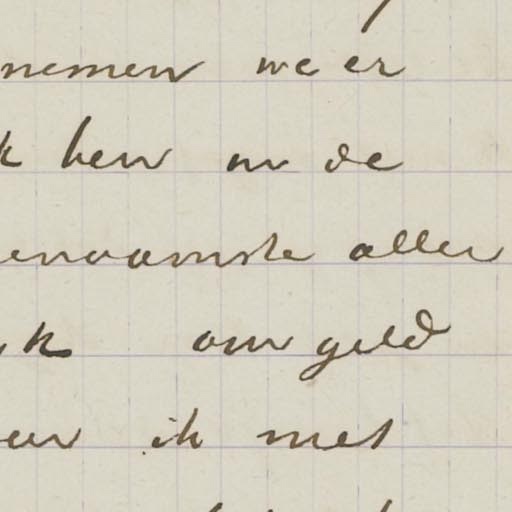 nemen we er
k ben in de
enaamste aller
ik om geld
en ik met